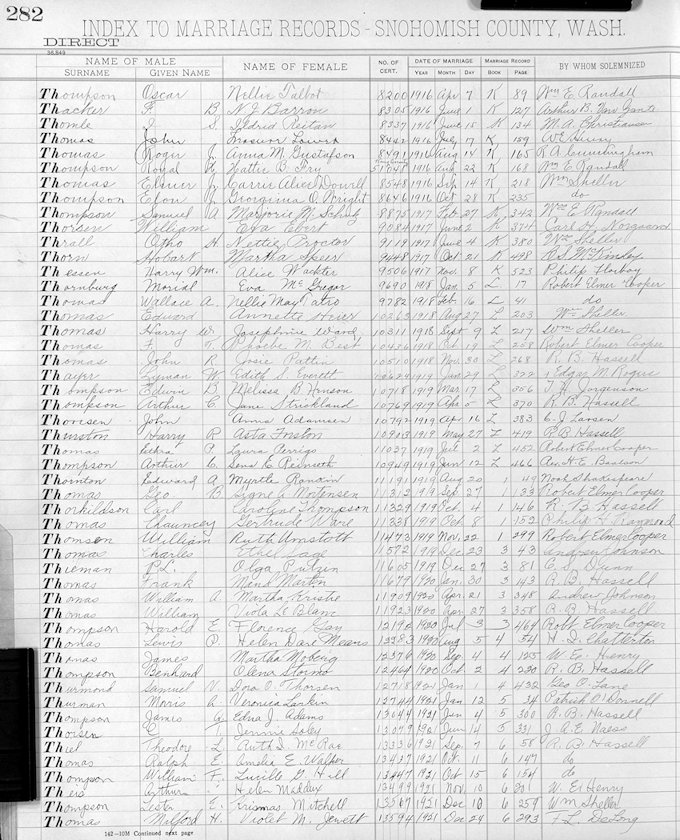 282
INDEX TO MARRIAGE RECORDS - SNOHOMISH COUNTY, WASH.
DIRECT
36,849
NAME OF MALE NAME OF FEMALE NO. OF CERT. DATE OF MARRIAGE MARRIAGE RECORD BY WHOM SOLEMNIZED
SURNAME GIVEN NAME YEAR MONTH DAY BOOK PAGE
Thompson Oscar Nellie Talbot 8200 1916 Apr 7 K 89 Wm E. Randall
Thacker F. B N. J. Barron 8305 1916 June 1 K 127 Arthur B.
Thomle J S. Mildred 8337 1916 June 15 K 134 M. A. Christensen
Thomas John 1916 July 17 K 159
Thomas Roger J. Anna M. Gustafson 8491 1916 Aug 14 K 165 R A Cunningham
Thompson Royal H Hattie B. Fry 1916 Aug 22 K 168 Wm E Randall
Thomas Elmer Jr Carrie Alice Dowell 8548 1916 Sep 14 K 218 Wm Sheller
Thompson Georgiana O. Wright 8646 1916 Oct 28 K 235 do
Thompson Samuel A Marjorie M. 8875 1917 Feb 27 K 342 Wm E Randall
Thorsen William Eva Ebert 9084 1917 June 2 K 374 Carl H. Norgaard
Thrall Otho H. Nettie Proctor 9119 1917 June 4 K 380 Wm Sheller
Thorn Hobart Martha Speer 9448 1917 Oct 21 K 498
Thessen Harry Wm. Alice Wachter 9506 1917 Nov. 8 K 523 Philip
Thornburg Morial Eva McGregor 9690 1918 Jan 5 L 17 Robert Elmer Cooper
Thomas Wallace A. Nellie May Tatro 9782 1918 Feb 16 L 41 do
Thomas Edward Annette 10263 1918 Aug 27 L 203 Wm Sheller
Thomas Harry W. Josephine Ward 10311 1918 Sept 9 L 217 Wm Sheller
Thomas F. T. Phoebe M. Best 10456 1918 Oct 19 L 258 Robert Elmer Cooper
Thomas John R Josie Pattin 10510 1918 Nov. 30 L 268 R. B. Hassell
Thayer Lyman W Edith S. Everett 10624 1919 Jan 29 L 322 Edgar M Rogers
Thompson Edwin B Melissa B. Hinson 10718 1919 Mar 17 L 356 T. H. Jorgenson
Thompson Arthur C. Jane Strickland 10769 1919 Apr 5 L 370 R B Hassell
Thorsen John Anna Adamsen 10792 1919 Apr 16 L 383 C. J. Larsen
Thurston Harry R Asta Froston 10908 1919 May 27 L 419 R B Hassell
Thomas P. Laura Perrigo 11027 1919 Jul 2 L 452 Robert Elmer Cooper
Thompson Arthur C. 10949 1919 Jun 12 L 466 Rev. H. E.
Thornton Edward A Myrtle Rancin 11191 1919 Aug 20 49 Noah Shakespeare
Thomas Geo B Signe A. Mortensen 11312 1919 Sep 27 133 Robert Elmer Cooper
Thorkildson Carl Caroline Thompson 11329 1919 Oct 4 1 146 R. B Hassell
Thomas Chauncey Gertrude Ware 11338 1919 Oct 8 1 152 Philip H. Raymond
Thomson William Ruth Umstott 11473 1919 Nov 22 1 299 Robert Elmer Cooper
Thomas Charles Ethel Gage 11572 1919 Dec 23 3 43 Andrew Johnson
Thieman P. L. Olga 11605 1919 Dec 27 3 81 C. S. Dunn
Thomas Frank Maud Martin 11679 1920 Jan. 30 3 143 R. B. Hassell
Thomas William A. Martha Kristie 11909 1920 Apr 21 3 348 Andrew Johnson
Thomas William Viola Le Blanc 11923 1920 Apr 27 3 358 R. B Hassell
Thompson Harold E Florence Gay 12190 1920 Jul 3 3 464 Robt Elmer Cooper
Thomas Lewis P. Helen Dare Means 1920 Aug 5 4 54 H. I. Chatterton
Thomas James Martha Moberg 12376 1920 Sep 4 4 125 W. E. Henry
Thompson Benhard Olena Stormo 12464 1920 Oct 2 4 220 R. B. Hassell
Thurmond Samuel N. Dora O. Thorsen 12718 1921 Jan 4 432 Geo O. Lane
Thurman Morris G Veronica Larkin 12744 1921 Jan 12 5 34 Patrick O'Donnell
Thompson James A Edna J Adams 13044 1921 Jun 4 5 300 R. B. Hassell
Thorsen C. T. Jennie Soley 13079 1921 Jun 14 5 331 J. A. E. Naess
Thiel Theodore L. Ruth I. McRae 13336 1921 Sep 7 6 58 R. B. Hassell
Thomas Ralph E. Amelia E. Walper 13437 1921 Oct 11 6 147 do
Thompson William F. Lucille G. Hill 13447 1921 Oct 15 6 154 do
Theis Arthur Helen Maddux 13499 1921 Nov. 10 6 201 W. E. Henry
Thompson Lester E. Mitchell 1921 Dec 10 6 259 Wm Sheller
Thomas Melford H. Violet M. Jewett 13594 1921 Dec 24 6 293 F. L. DeLong
142-10M Continued next page